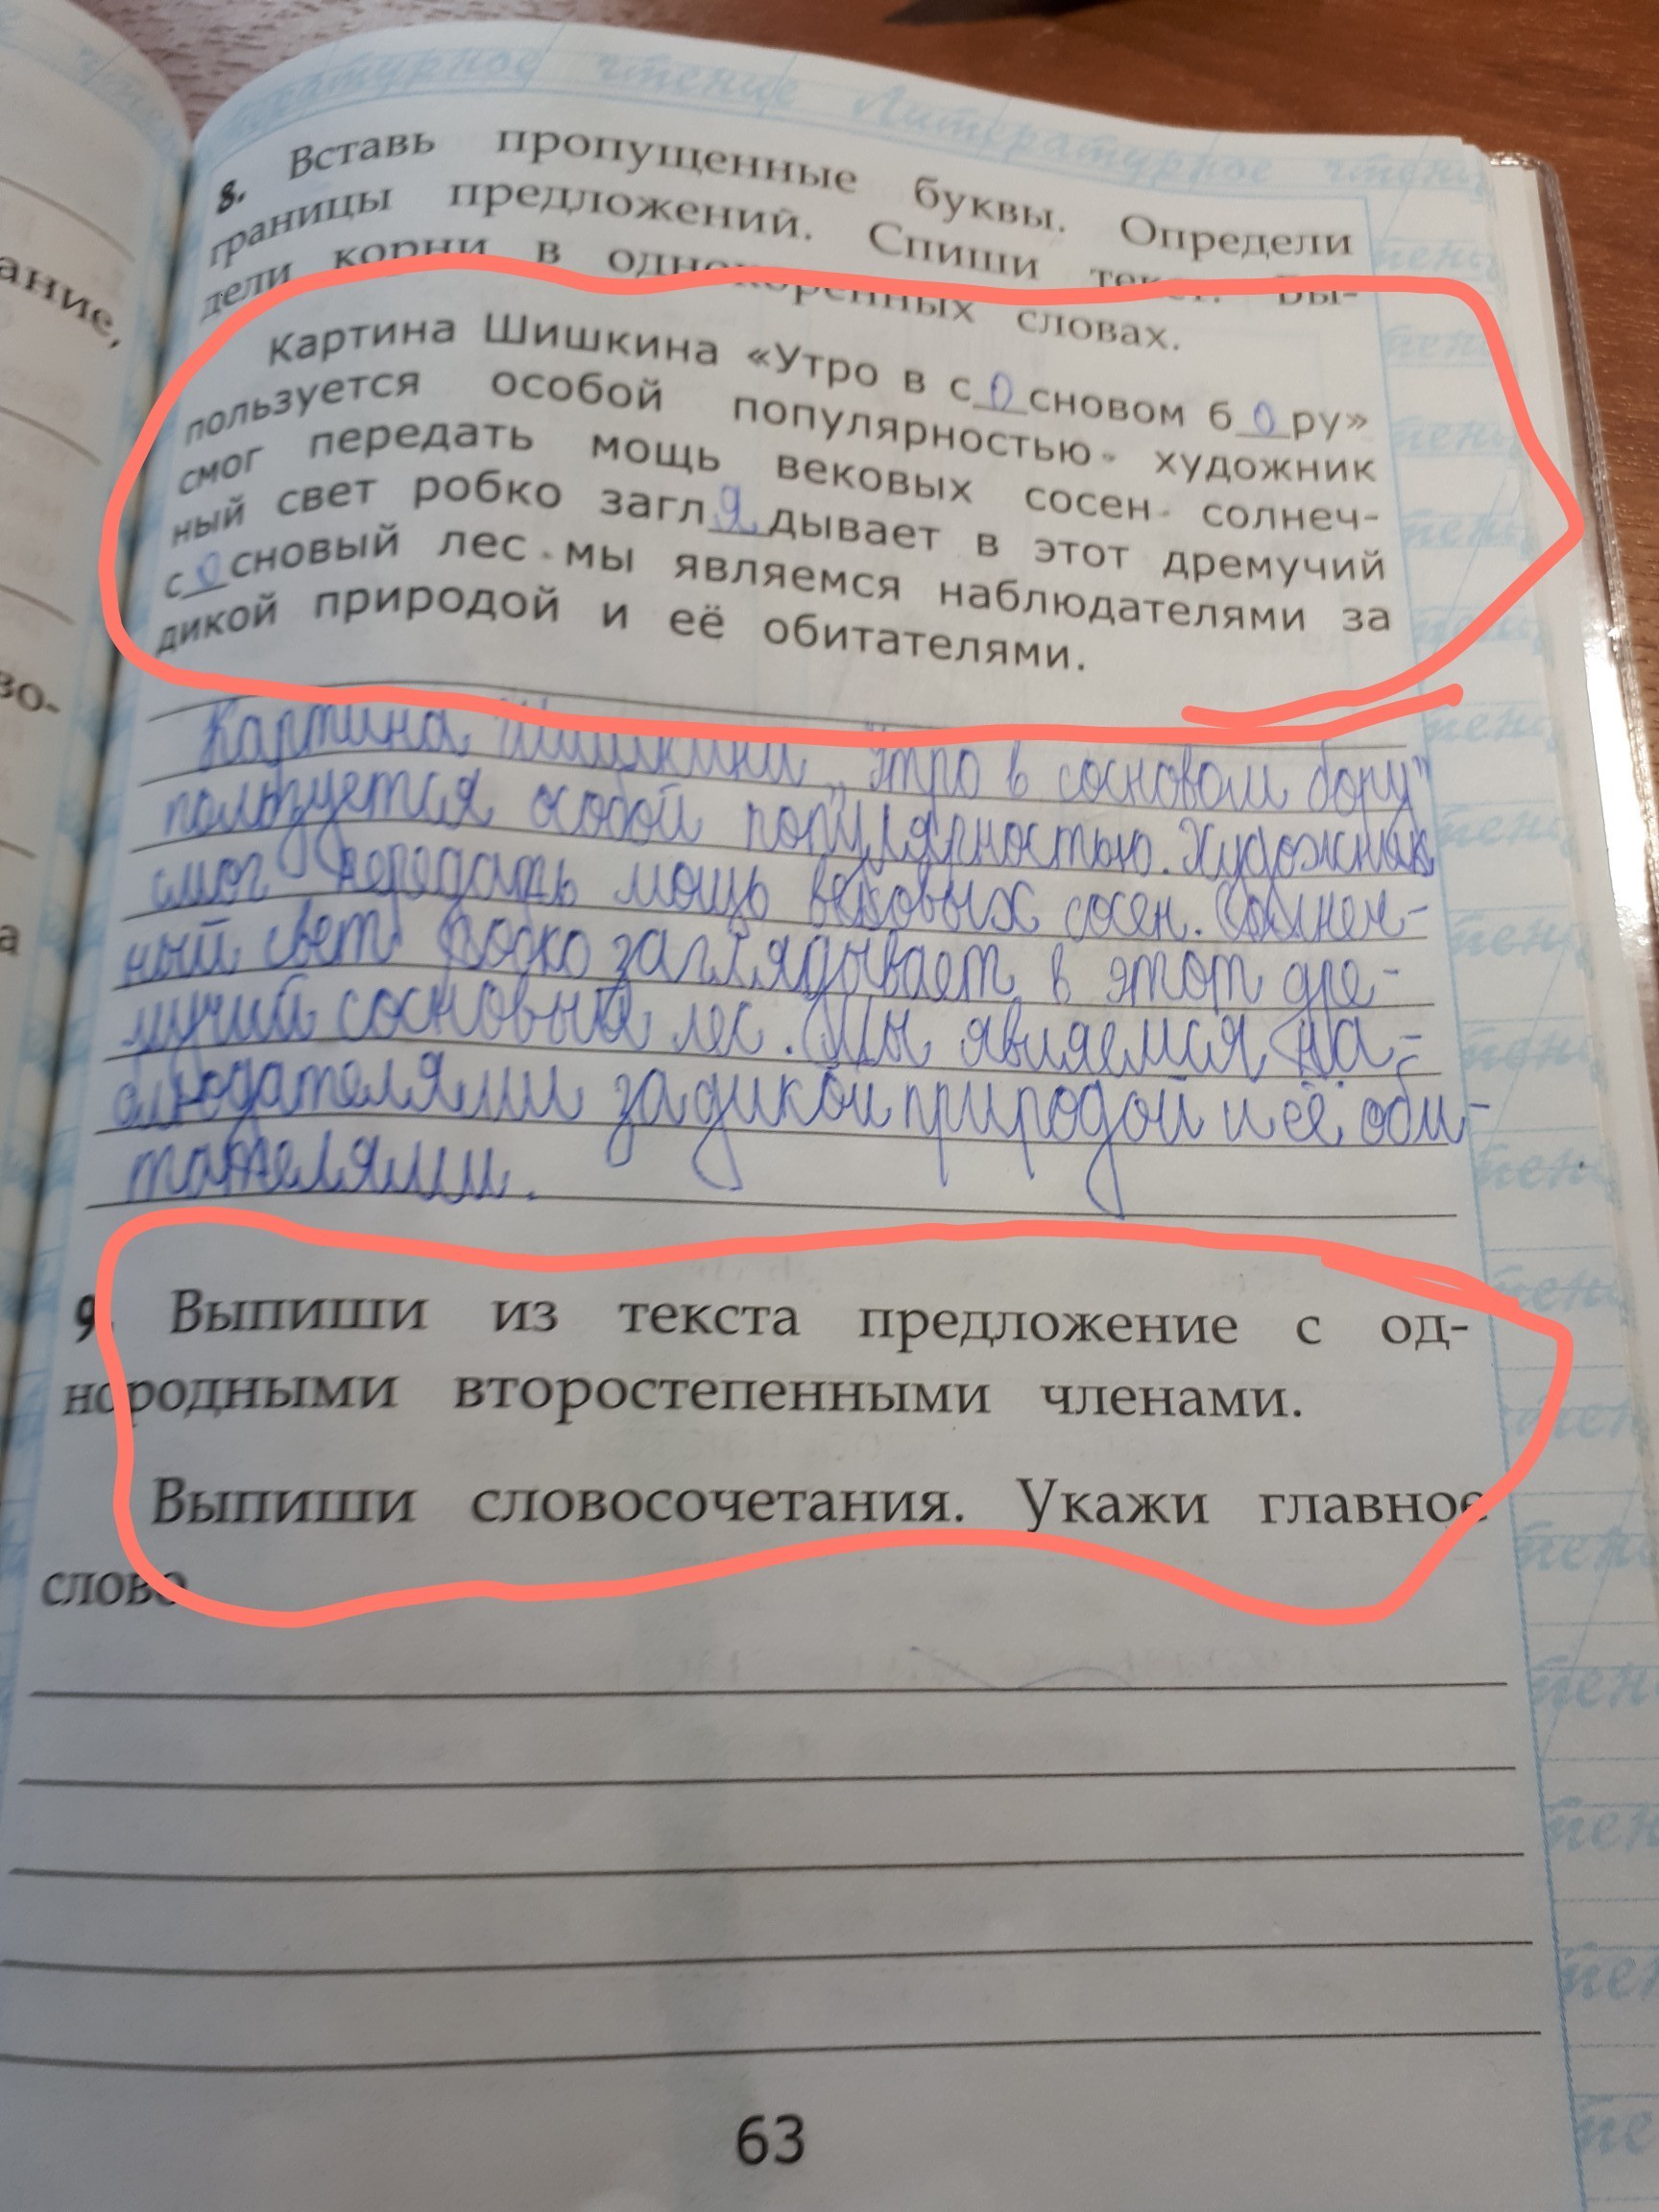 литературное чтение Литературное чтени
8. Вставь пропущенные буквы. Определи
границы предложений. Спиши текст. Вы-
дели корни в однокоренных словах.
Картина Шишкина «Утро в с_о_сновом б_о_ру»
пользуется особой популярностью художник
смог передать мощь вековых сосен солнеч-
ный свет робко загл_я_дывает в этот дремучий
с_о_сновый лес мы являемся наблюдателями за
дикой природой и её обитателями.
Картина Шишкина „Утро в сосновом бору"
пользуется особой популярностью. Художник
смог передать мощь вековых сосен. Солнеч-
ный свет робко заглядывает в этот дре-
мучий сосновый лес. Мы являемся на-
блюдателями за дикой природой и её оби-
тателями.
9. Выпиши из текста предложение с од-
нородными второстепенными членами.
Выпиши словосочетания. Укажи главное
слово
63
ание,
во-
а